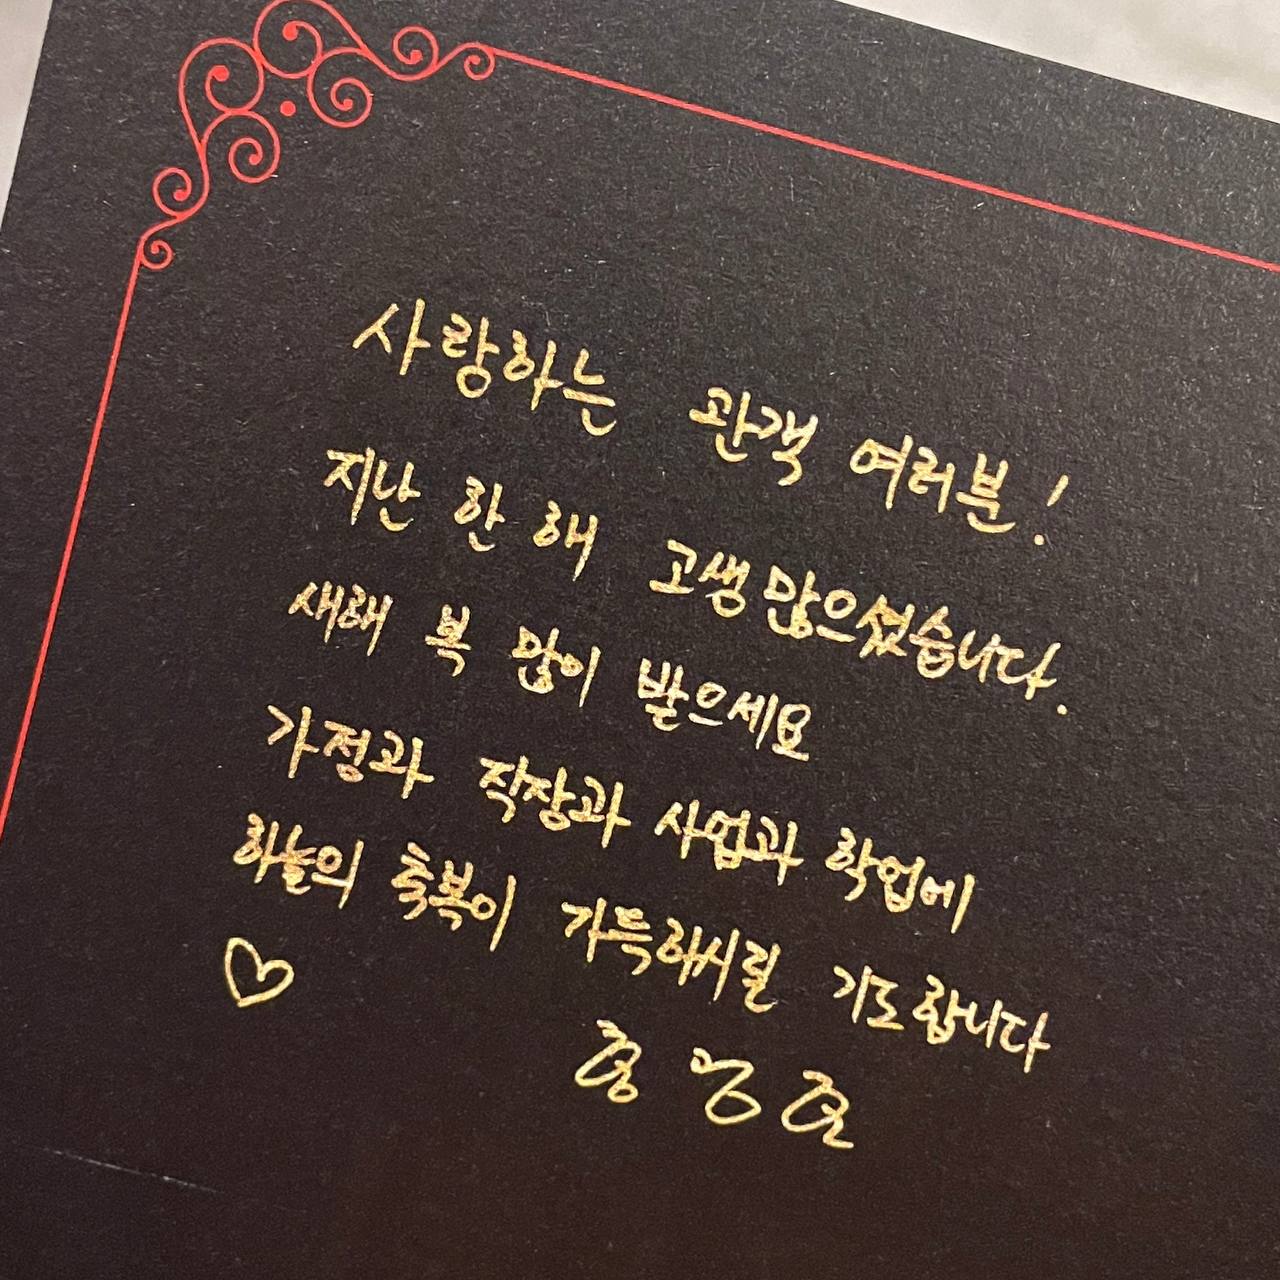 사랑하는 관객 여러분!
지난 한 해 고생 많으셨습니다.
새해 복 많이 받으세요
가정과 직장과 사업과 학업에
하늘의 축복이 가득하시길 기도합니다
♡